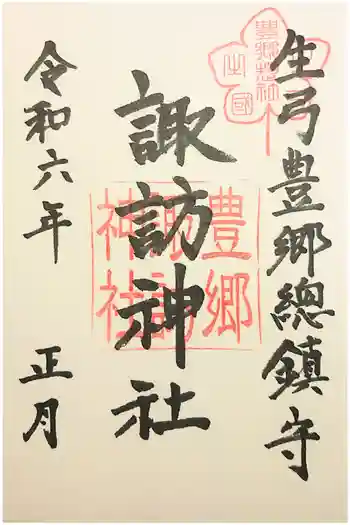 生弓豊郷總鎮守
諏訪神社
令和六年 正月
豊郷
諏訪
神社
出國